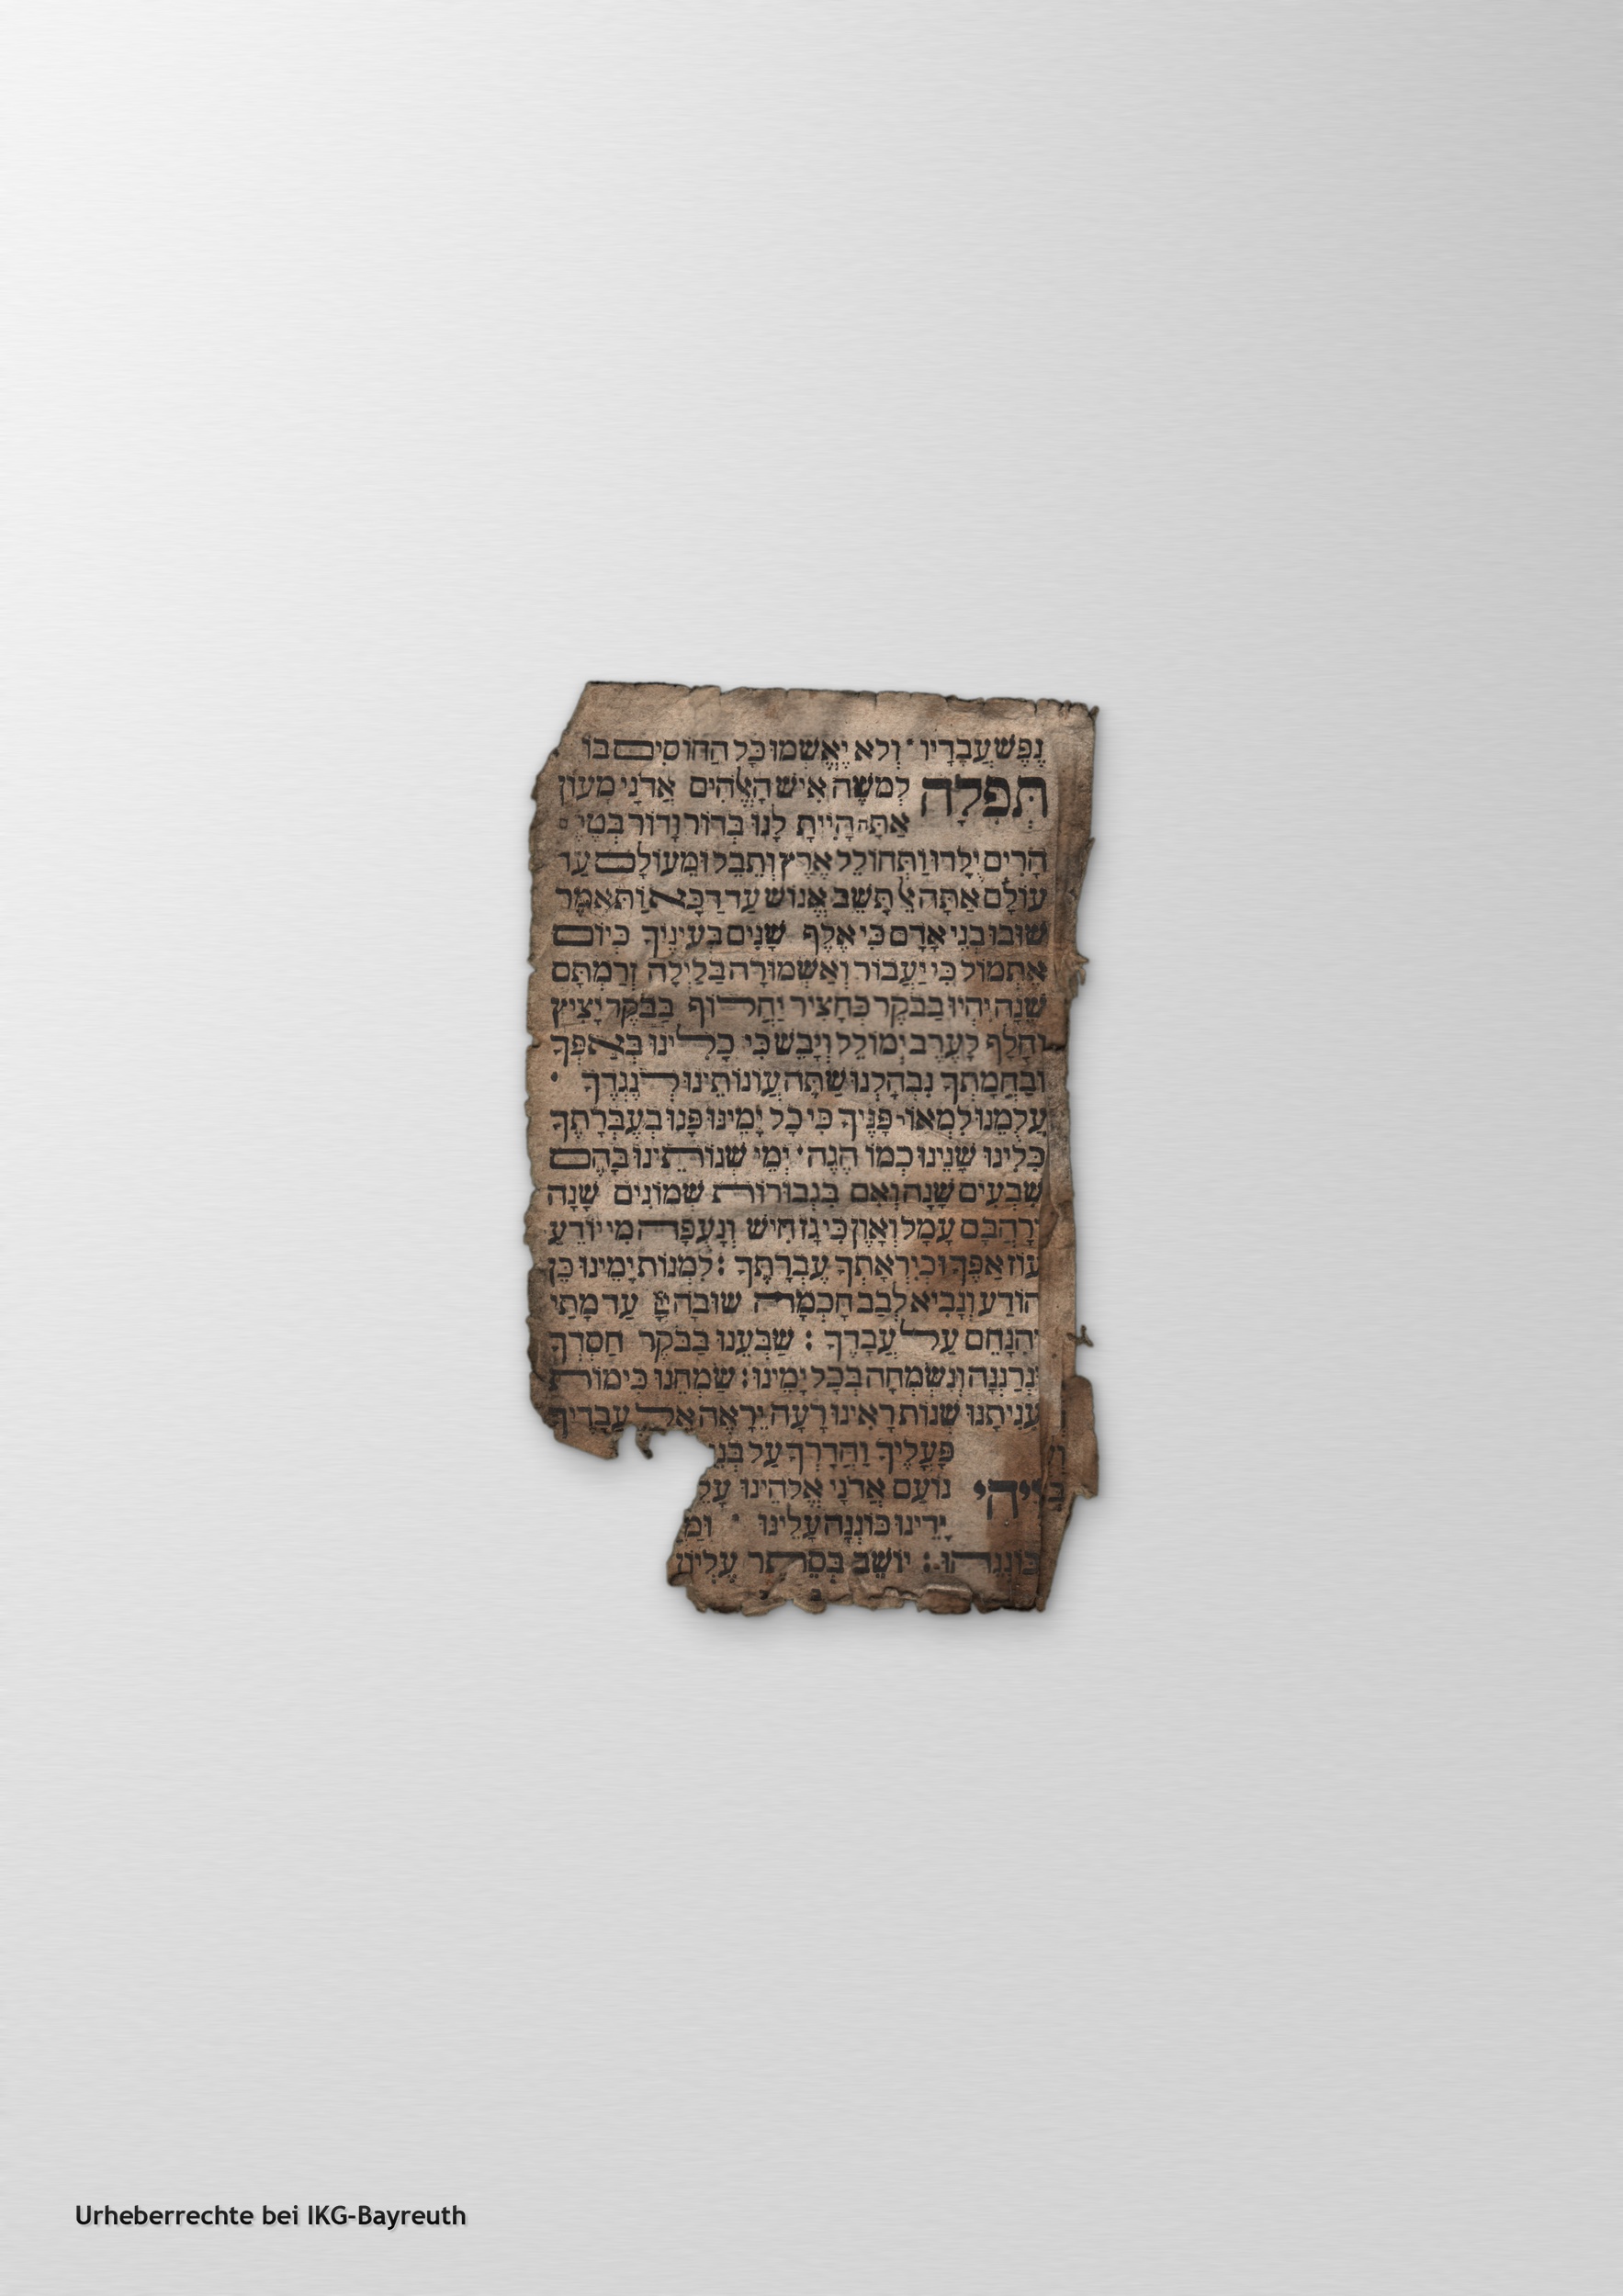 נֶפֶשׁ עֲבָדָיו · וְלֹא יֶאֱשְׁמוּ כָּל הַחוֹסִים בּוֹ
תְּפִלָּה לְמֹשֶׁה אִישׁ הָאֱלֹהִים אֲדֹנָי מָעוֹן
אַתָּה הָיִיתָ לָנוּ בְּדוֹר וָדוֹר בְּטֶ׳
הָרִים יֻלָּדוּ וַתְּחוֹלֵל אֶרֶץ וְתֵבֵל וּמֵעוֹלָם עַד
עוֹלָם אַתָּה אֵל תָּשֵׁב אֱנוֹשׁ עַד דַּכָּא וַתֹּאמֶר
שׁוּבוּ בְנֵי אָדָם כִּי אֶלֶף שָׁנִים בְּעֵינֶיךָ כְּיוֹם
אֶתְמוֹל כִּי יַעֲבוֹר וְאַשְׁמוּרָה בַּלַּיְלָה זְרַמְתָּם
שֵׁנָה יִהְיוּ בַבֹּקֶר כֶּחָצִיר יַחֲלוֹף בַּבֹּקֶר יָצִיץ
וְחָלָף לָעֶרֶב יְמוֹלֵל וְיָבֵשׁ כִּי כָלִינוּ בְאַפֶּךָ
וּבַחֲמָתְךָ נִבְהָלְנוּ שַׁתָּה עֲוֹנוֹתֵינוּ לְנֶגְדֶּךָ ·
עֲלֻמֵנוּ לִמְאוֹר פָּנֶיךָ כִּי כָל יָמֵינוּ פָּנוּ בְעֶבְרָתֶךָ
כִּלִּינוּ שָׁנֵינוּ כְמוֹ הֶגֶה · יְמֵי שְׁנוֹתֵינוּ בָהֶם
שִׁבְעִים שָׁנָה וְאִם בִּגְבוּרוֹת שְׁמוֹנִים שָׁנָה
וְרָהְבָּם עָמָל וָאָוֶן כִּי גָז חִישׁ וַנָּעֻפָה מִי יוֹדֵעַ
עוֹז אַפֶּךָ וּכְיִרְאָתְךָ עֶבְרָתֶךָ : לִמְנוֹת יָמֵינוּ כֵּן
הוֹדַע וְנָבִיא לְבַב חָכְמָה שׁוּבָה יְיָ עַד מָתַי
וְהִנָּחֵם עַל עֲבָדֶיךָ : שַׂבְּעֵנוּ בַבֹּקֶר חַסְדֶּךָ
וּנְרַנְּנָה וְנִשְׂמְחָה בְּכָל יָמֵינוּ : שַׂמְּחֵנוּ כִּימוֹת
עִנִּיתָנוּ שְׁנוֹת רָאִינוּ רָעָה יֵרָאֶה אֶל עֲבָדֶיךָ
פָּעֳלֶיךָ וַהֲדָרְךָ עַל בְּנֵ
וִיהִי נוֹעַם אֲדֹנָי אֱלֹהֵינוּ עָלֵ
יָדֵינוּ כּוֹנְנָה עָלֵינוּ · וּמַ
כּוֹנְנֵהוּ : יוֹשֵׁב בְּסֵתֶר עֶלְיוֹן
Urheberrechte bei IKG-Bayreuth